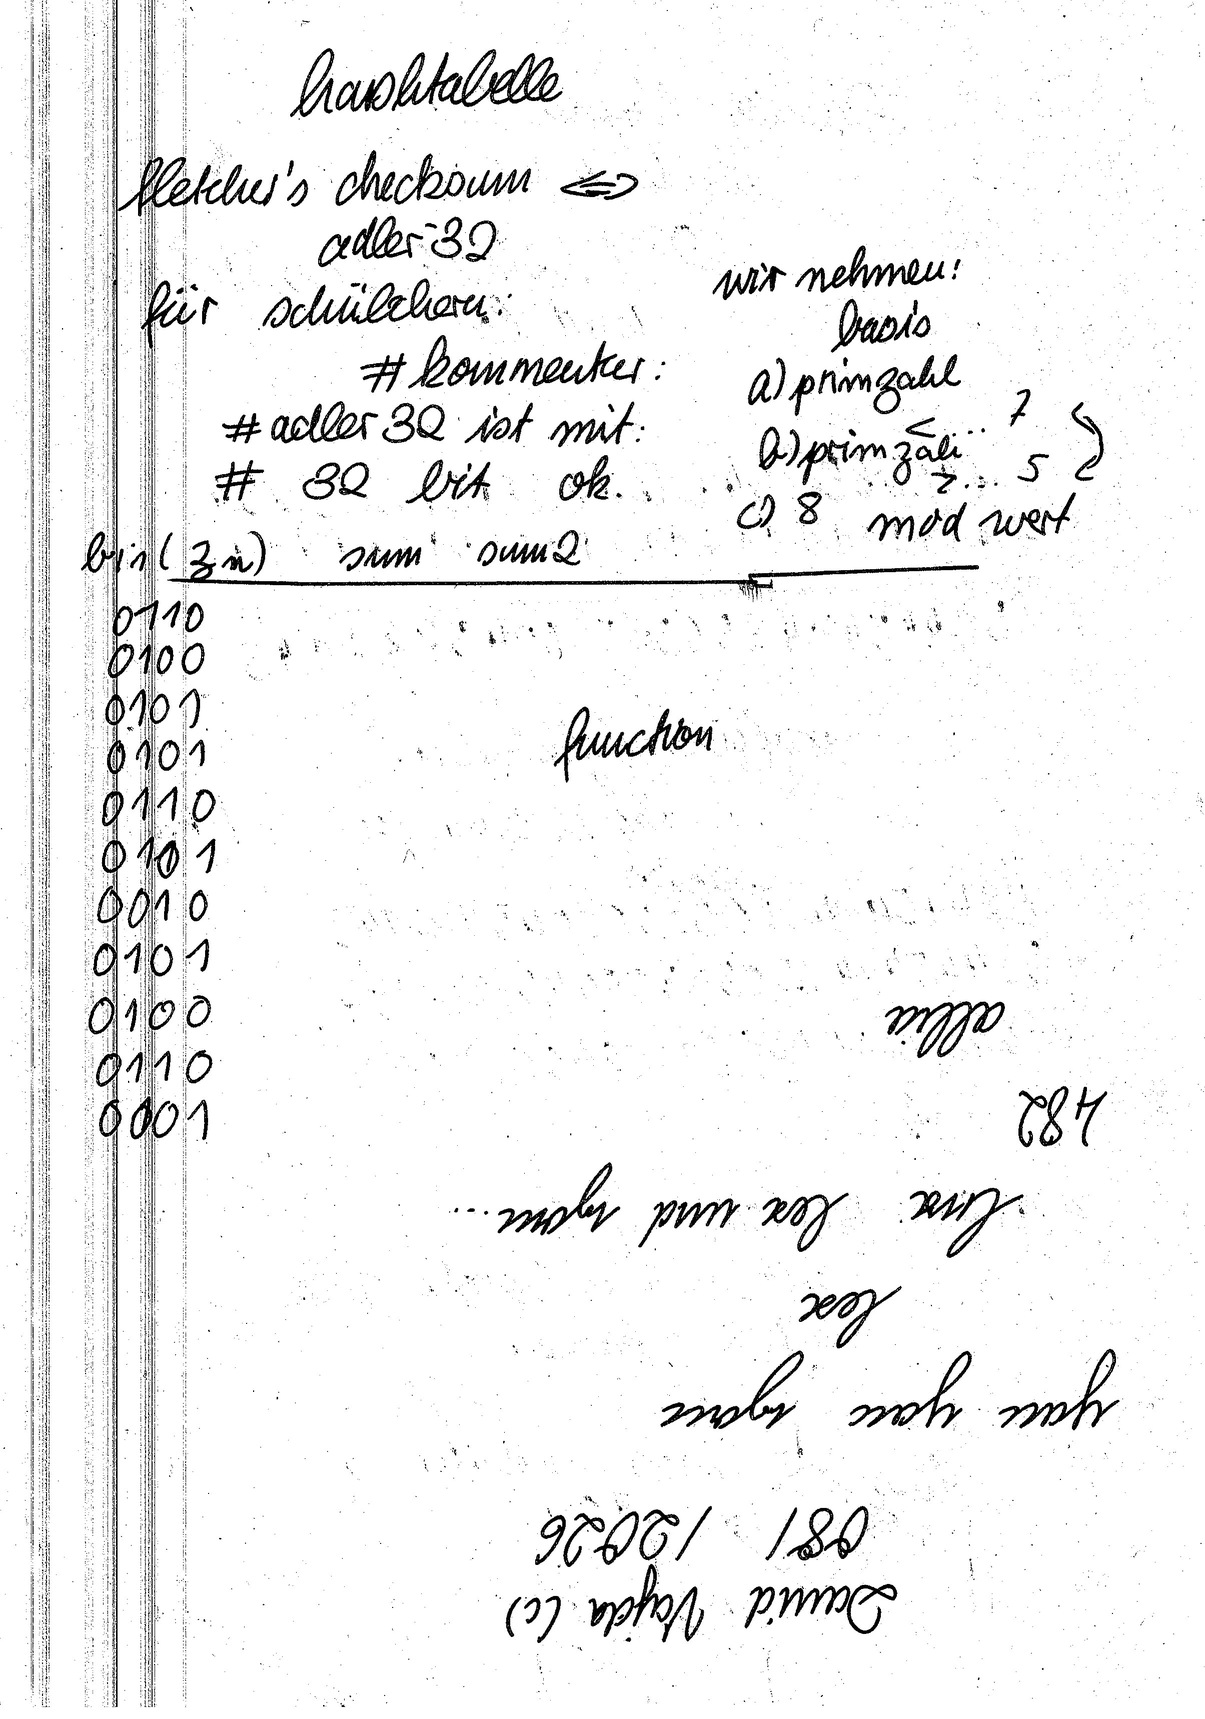 hashtabelle
fletcher's checksum <=>
adler-32
für schülchern:
# kommentker:
# adler32 ist mit:
# 32 bit ok.
wir nehmen:
basis
a) primzahl
< ... 7
b) primzahl
> ... 5
c) 8 mod wert
bin(zn) sum sum2
0110
0100
0101
0101
0110
0101
0010
0101
0100
0110
0001
function
David Vajda (c)
081 / 2026
yacc yacc
lex
lex und
482
allia